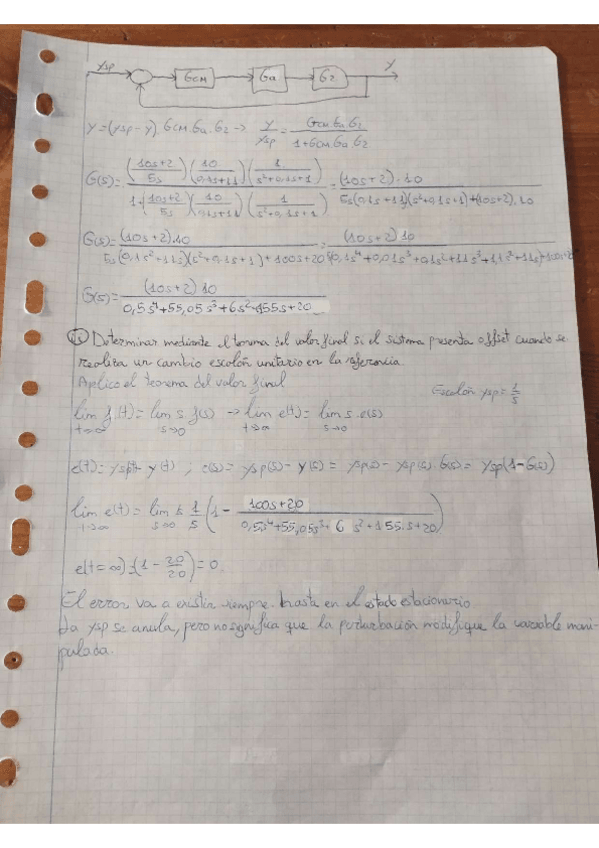 ysp GCM Ga G2 y
y=(ysp-y).GCM.Ga.G2 → y/ysp = GCM.Ga.G2 / 1+GCM.Ga.G2
G(s)= ((10s+2)/5s)(10/(0,1s+11))(1/(s²+0,1s+1)) / 1+((10s+2)/5s)(10/(0,1s+11))(1/(s²+0,1s+1)) = (10s+2).10 / 5s(0,1s+11)(s²+0,1s+1)+(10s+2).10
G(s)= (10s+2).10 / 5s(0,1s²+11s)(s²+0,1s+1)+100s+20 = (10s+2)10 / (0,1s⁴+0,01s³+0,1s²+11s³+1,1s²+11s)+100s+20
G(s)= (10s+2)10 / 0,5s⁴+55,05s³+6s²+155s+20
Determinar mediante el teorema del valor final si el sistema presenta offset cuando se
realiza un cambio escalón unitario en la referencia.
Aplico el teorema del valor final
Escalón ysp=1/s
lim t→∞ f(t)=lim s→0 s.f(s) → lim t→∞ e(t)= lim s→0 s.e(s)
e(t)= ysp(t)-y(t) ; e(s)= ysp(s)-y(s) = ysp(s)-ysp(s).G(s)= ysp(1-G(s))
lim t→∞ e(t)= lim s→0 s 1/s (1- 100s+20 / 0,5s⁴+55,05s³+6s²+155.s+20)
e(t=∞)=(1-20/20)=0
El error va a existir siempre. hasta en el estado estacionario.
La ysp se anula, pero no significa que la perturbación modifique la variable mani-
pulada.